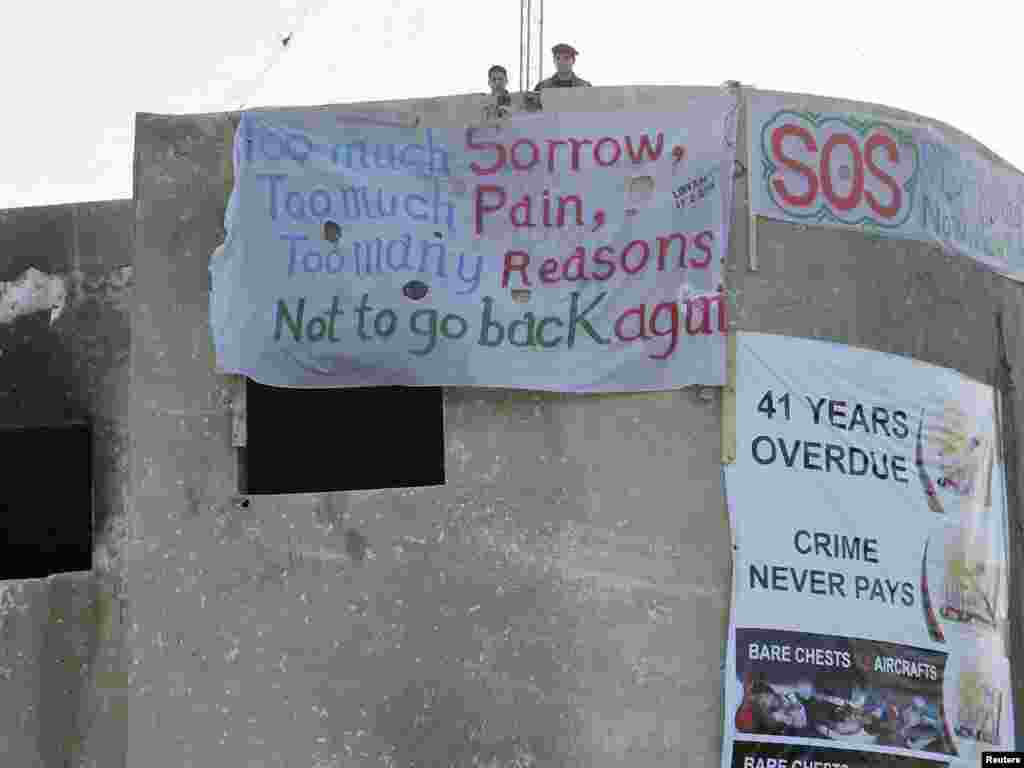 Too much Sorrow,
Too much Pain,
Too many Reasons.
Not to go back Kagui
SOS
41 YEARS
OVERDUE
CRIME
NEVER PAYS
BARE CHESTS AIRCRAFTS
BARE CHESTS
Reuters